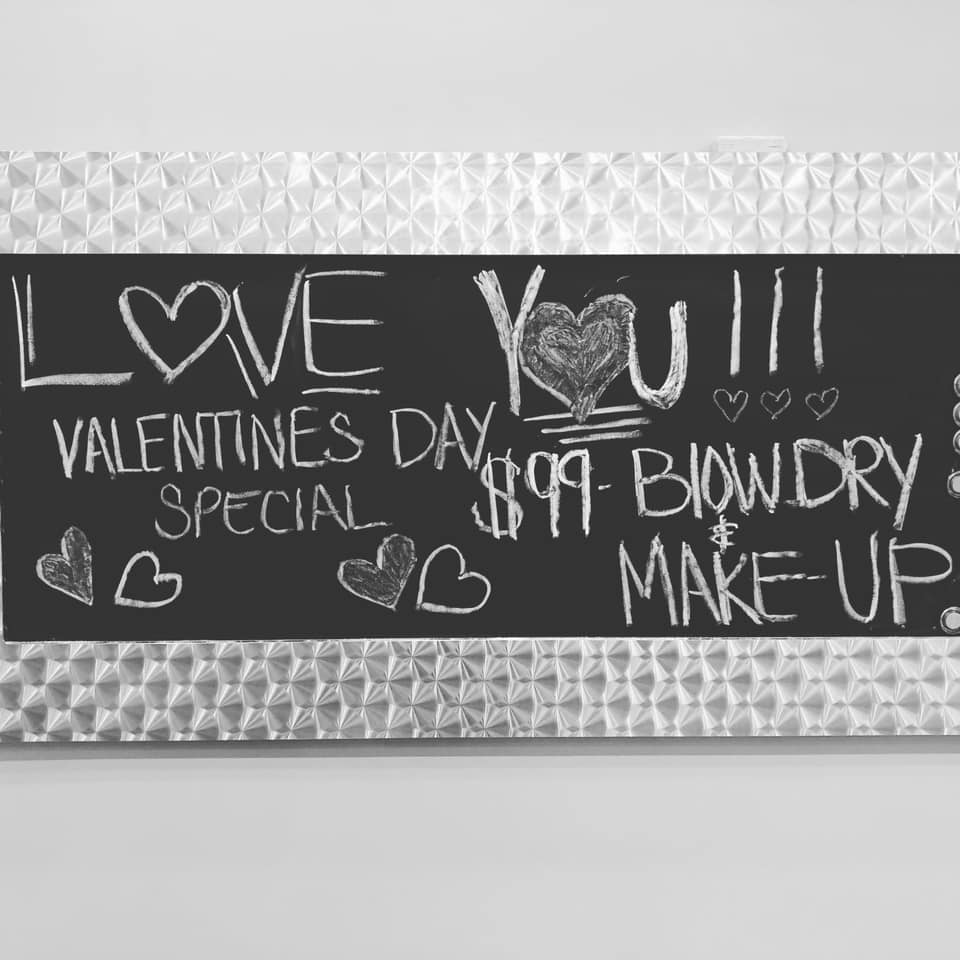 LOVE YOU!!!
VALENTINES DAY
SPECIAL
$99- BLOWDRY
&
MAKE-UP